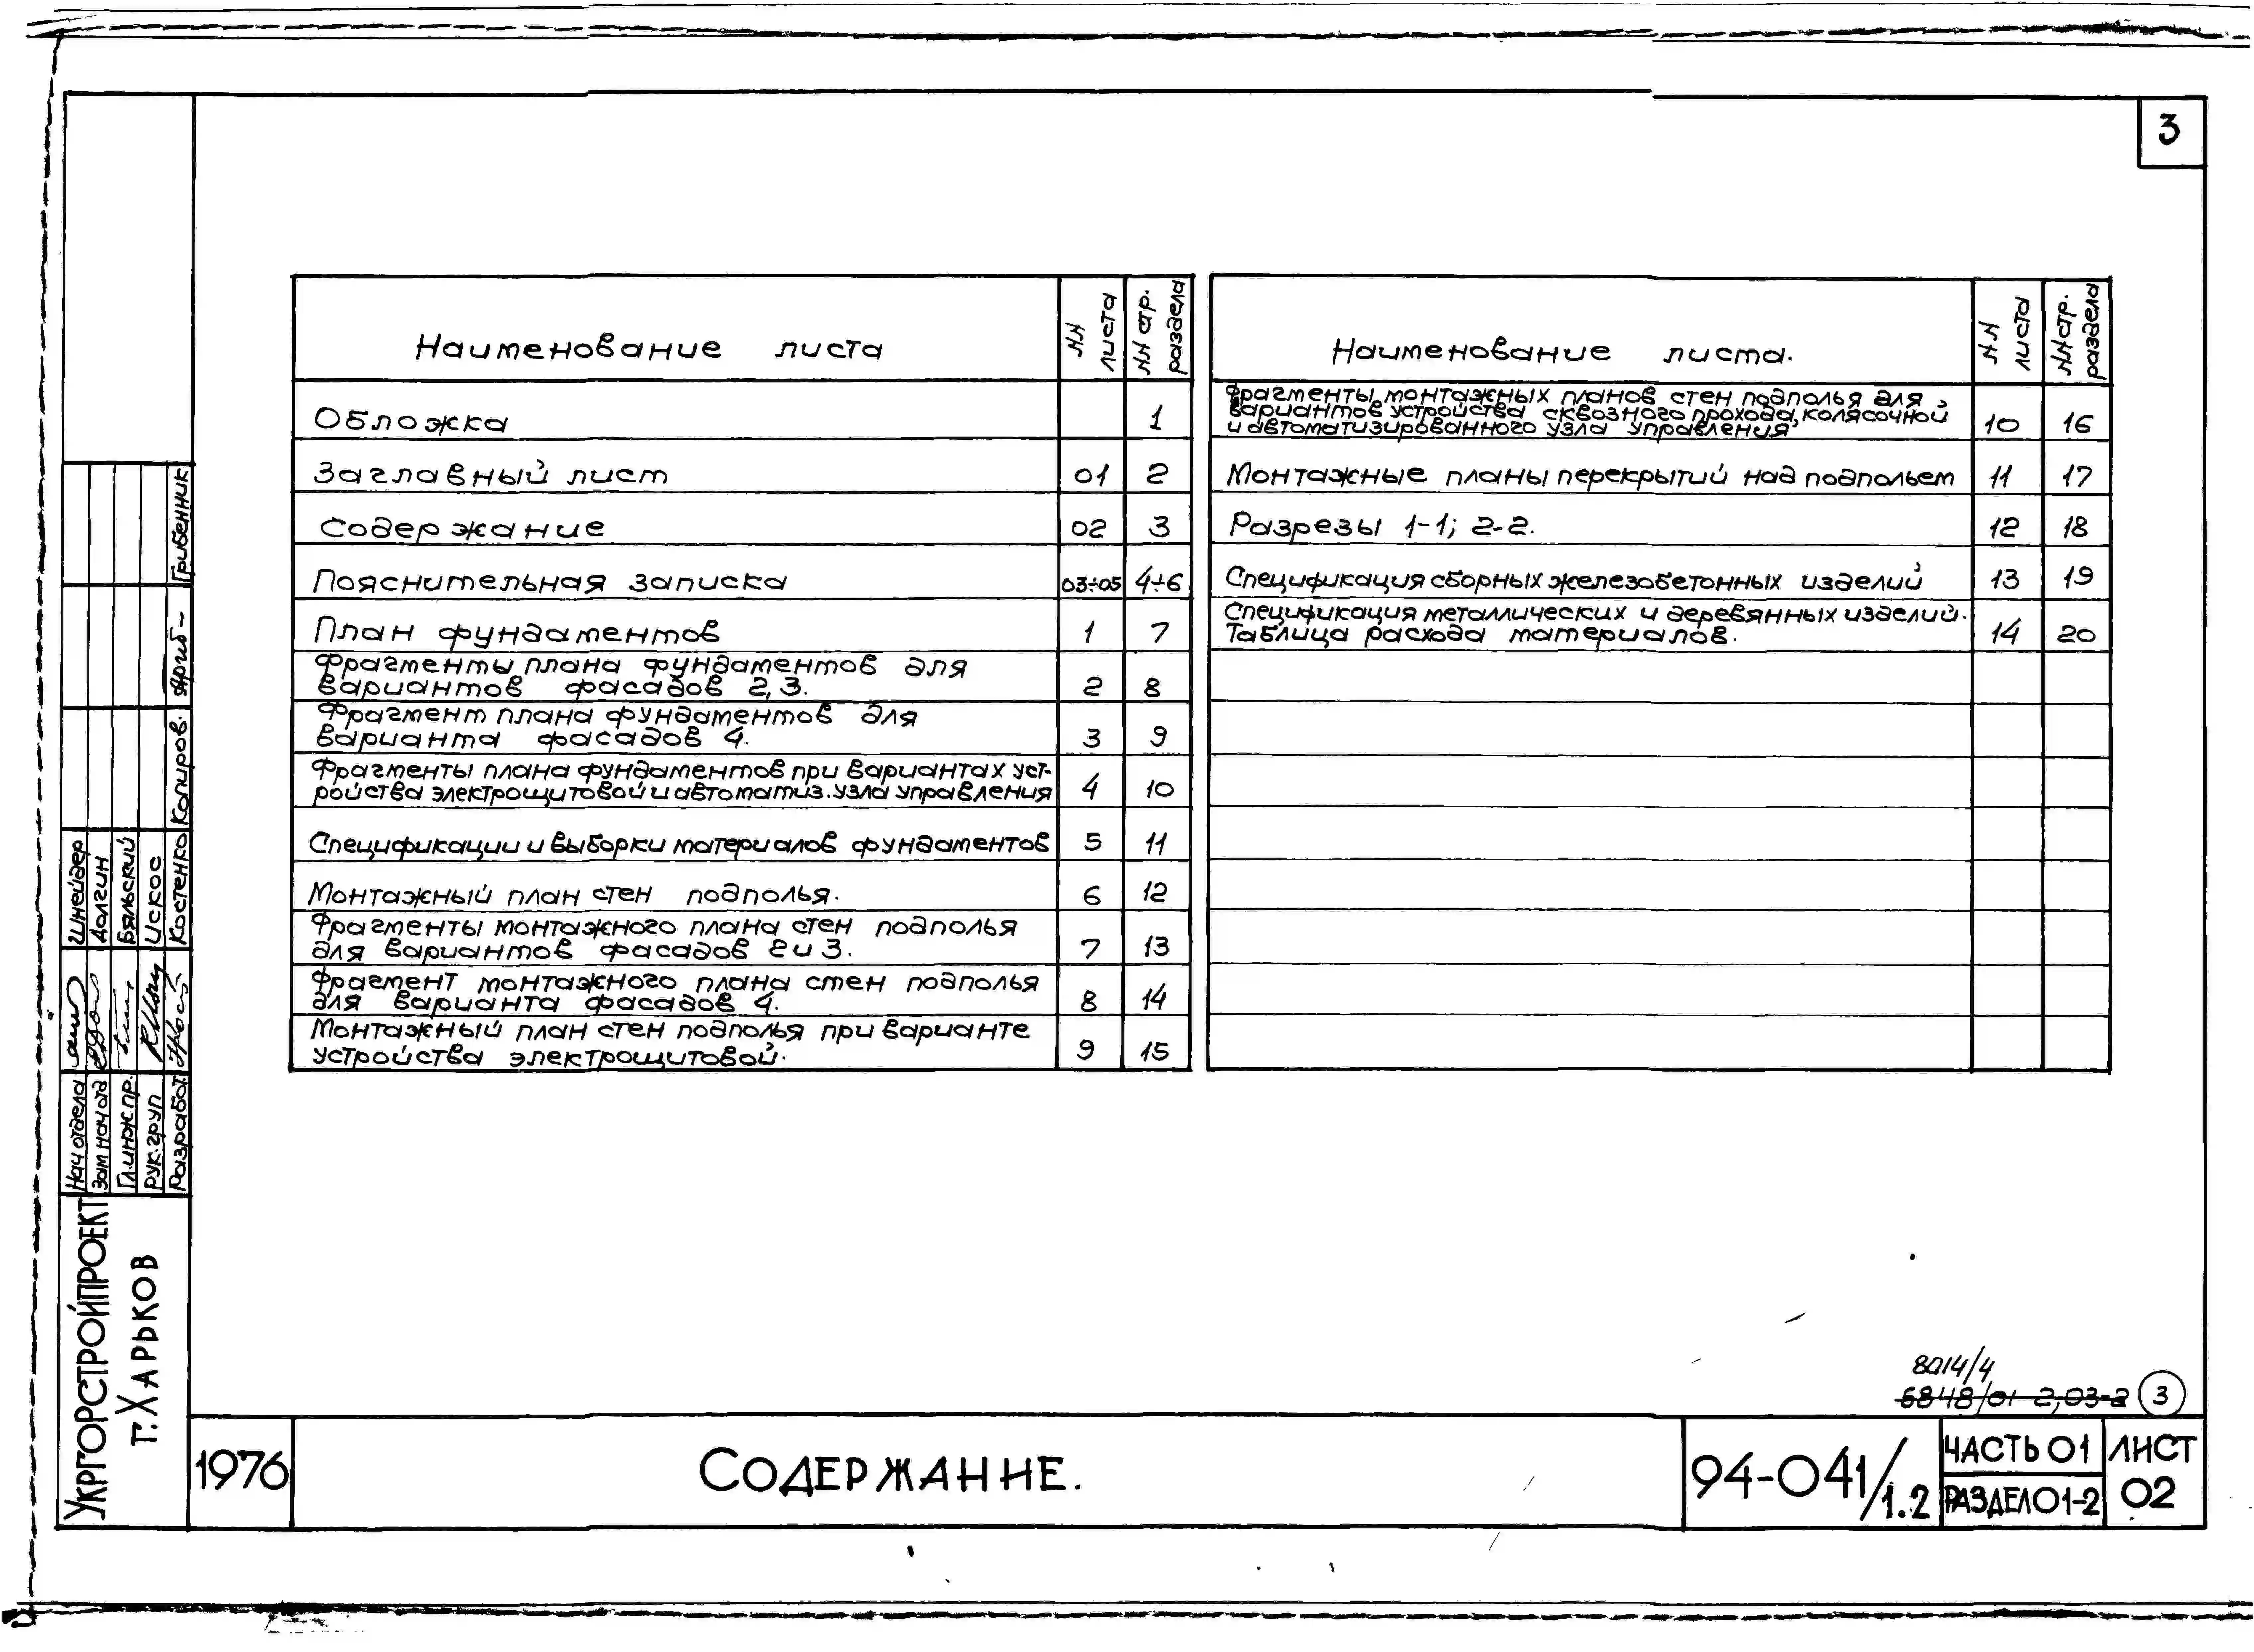 3
Наименование листа
NN листа
NN стр. раздела
Обложка 1
Заглавный лист 01 2
Содержание 02 3
Пояснительная записка 03÷05 4÷6
План фундаментов 1 7
Фрагменты плана фундаментов для
вариантов фасадов 2,3. 2 8
Фрагмент плана фундаментов для
варианта фасадов 4. 3 9
Фрагменты плана фундаментов при вариантах уст-
ройства электрощитовой и автоматиз. узла управления 4 10
Спецификации и выборки материалов фундаментов 5 11
Монтажный план стен подполья. 6 12
Фрагменты монтажного плана стен подполья
для вариантов фасадов 2 и 3. 7 13
Фрагмент монтажного плана стен подполья
для варианта фасадов 4. 8 14
Монтажный план стен подполья при варианте
устройства электрощитовой. 9 15
Наименование листа.
NN листа
NN стр. раздела
Фрагменты монтажных планов стен подполья для
вариантов устройства сквозного прохода, колясочной
и автоматизированного узла управления 10 16
Монтажные планы перекрытий над подпольем 11 17
Разрезы 1-1; 2-2. 12 18
Спецификация сборных железобетонных изделий 13 19
Спецификация металлических и деревянных изделий.
Таблица расхода материалов. 14 20
Гривенник
Копиров.
Шнейдер
Долгин
Бяльский
Искос
Костенко
Нач отдела
Зам нач отд
Гл.инж пр.
Рук. груп
Разработ.
Укргорстройпроект
г. Харьков
8014/4
6848/01-2,03-2 3
1976
Содержание.
94-041/1.2
Часть 01
Раздел 01-2
Лист
02